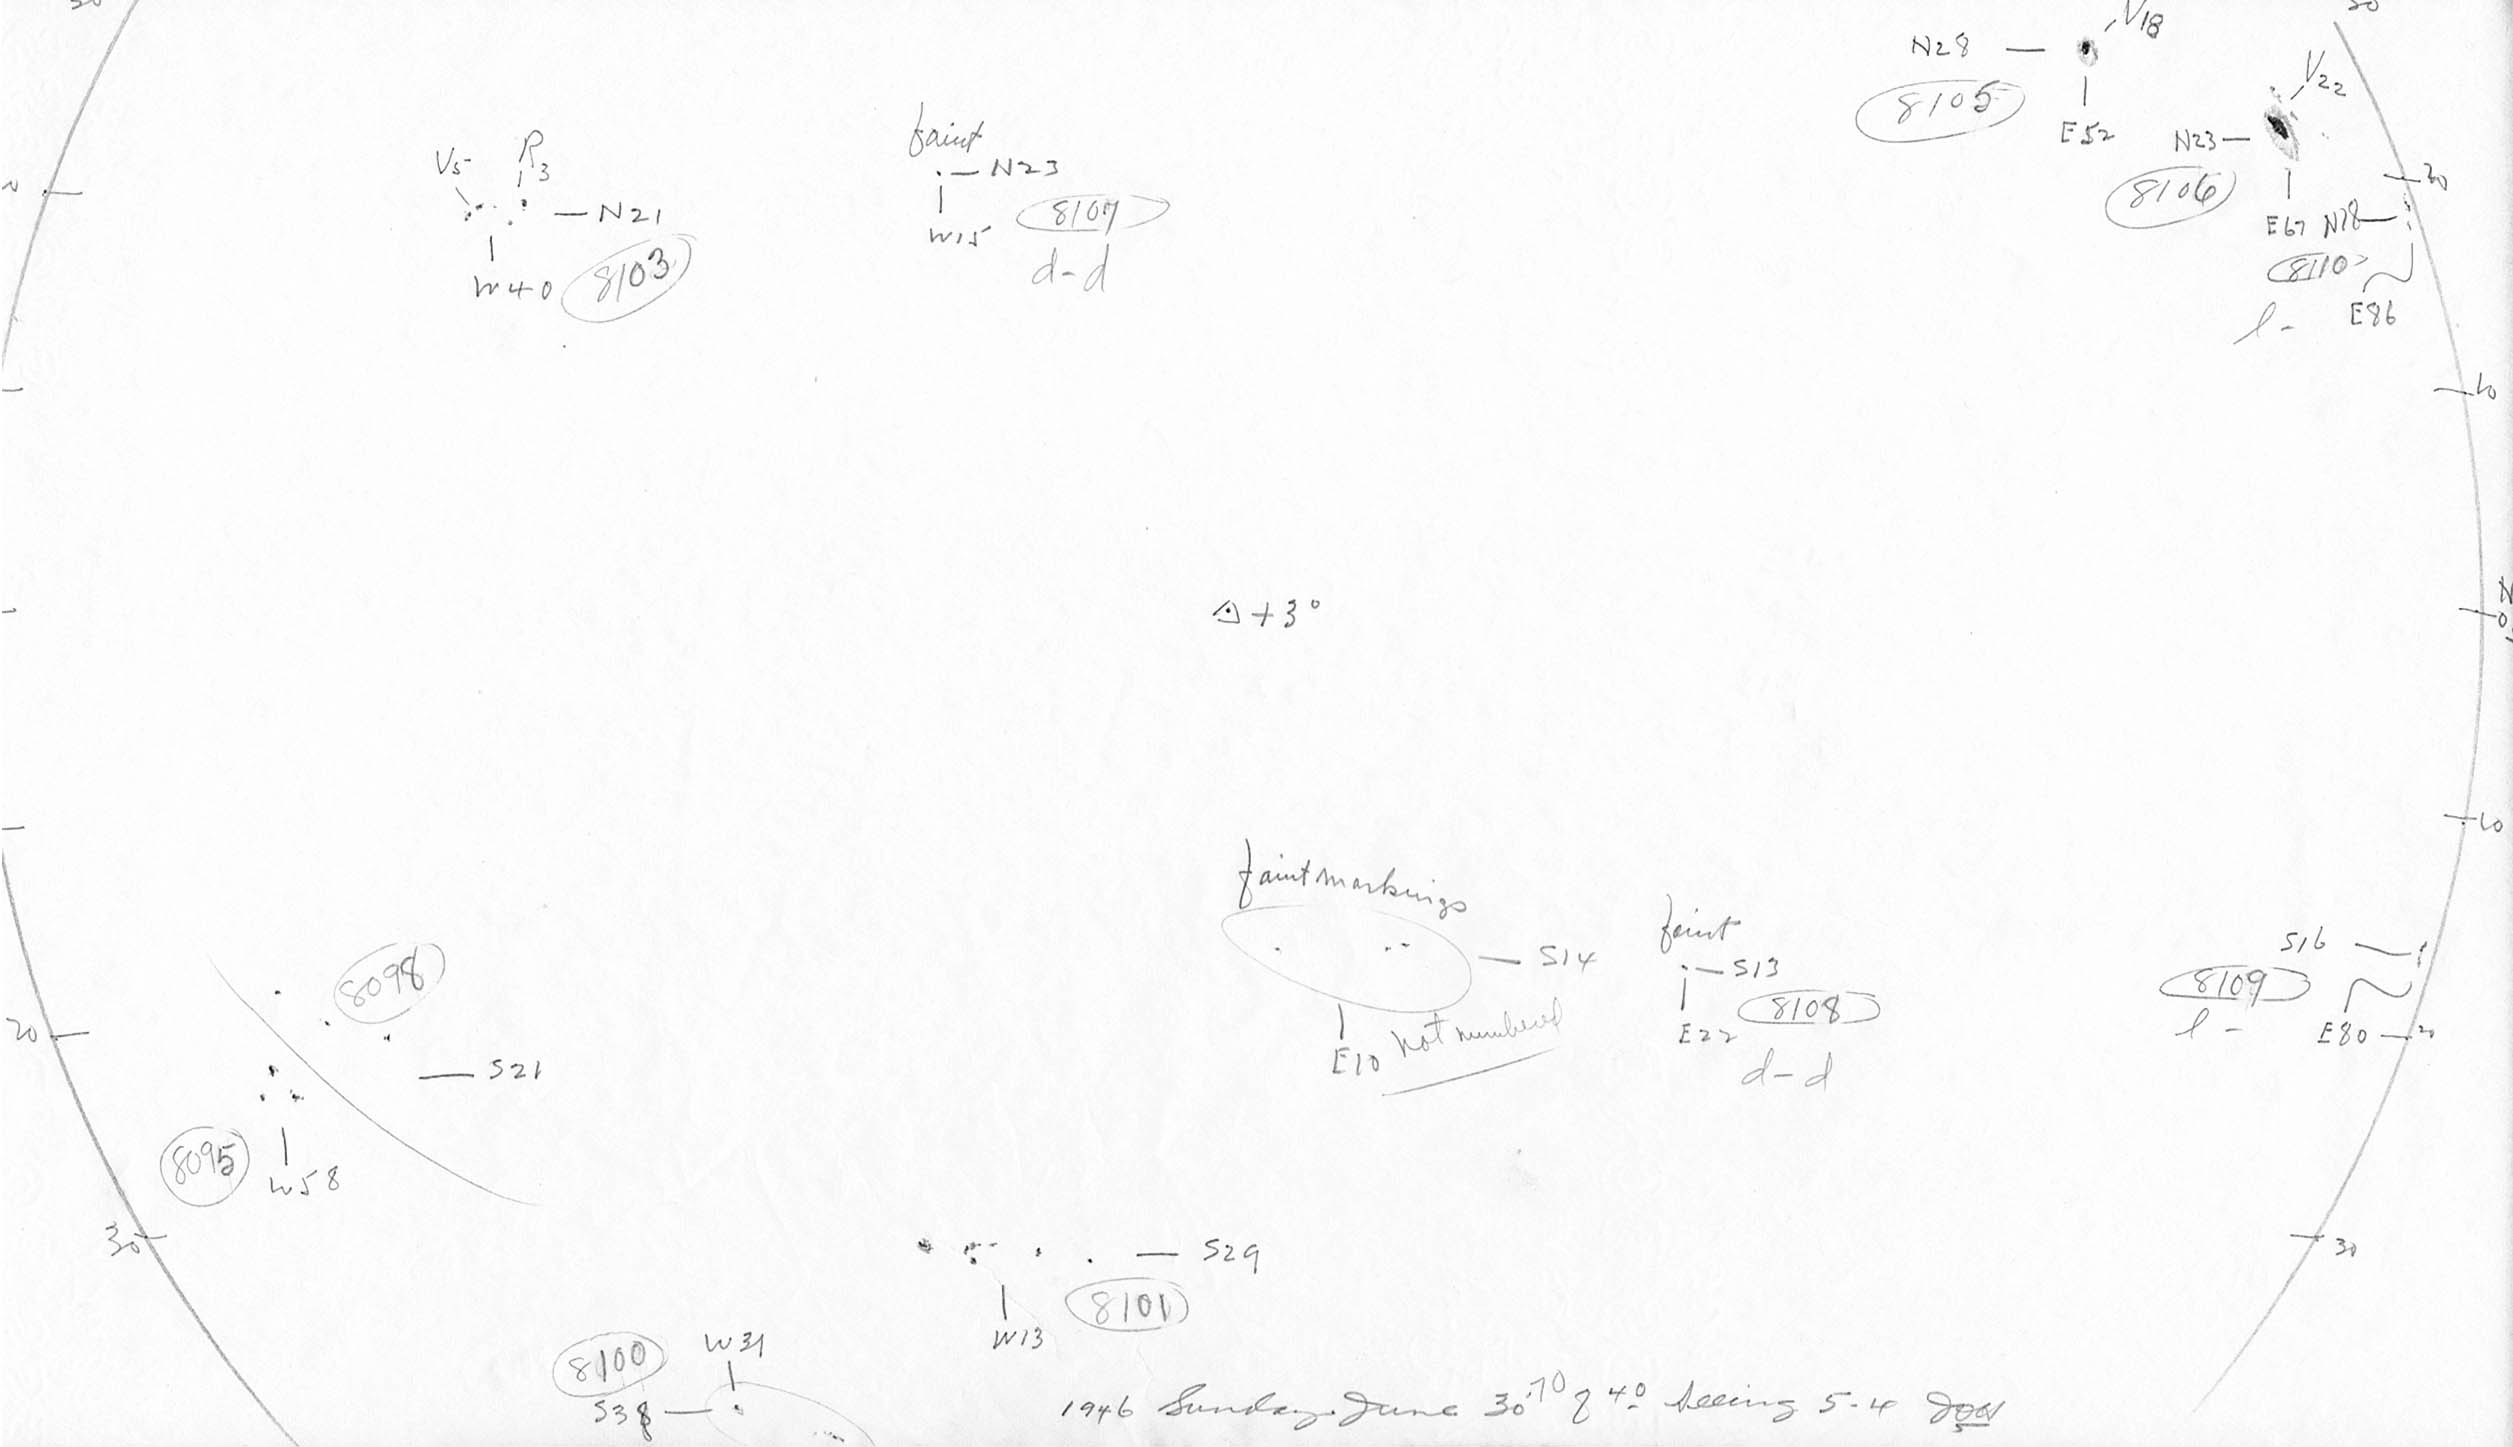 30
V18
30
N28 —
8105
E52
V22
N23 —
8106
E67
20
N18
8110
E86
l -
V5
R3
— N21
W40
8103
faint
— N23
W15
8107
d-d
10
+3°
0
10
faint markings
— S14
E10
not numbered
faint
— S13
E22
8108
d-d
S16
8109
l -
E80
20
8098
20
— S21
8095
W58
30
30
— S29
W13
8101
8100
W31
S38 —
1946 Sunday June 30.70 q 40 Seeing 5-4